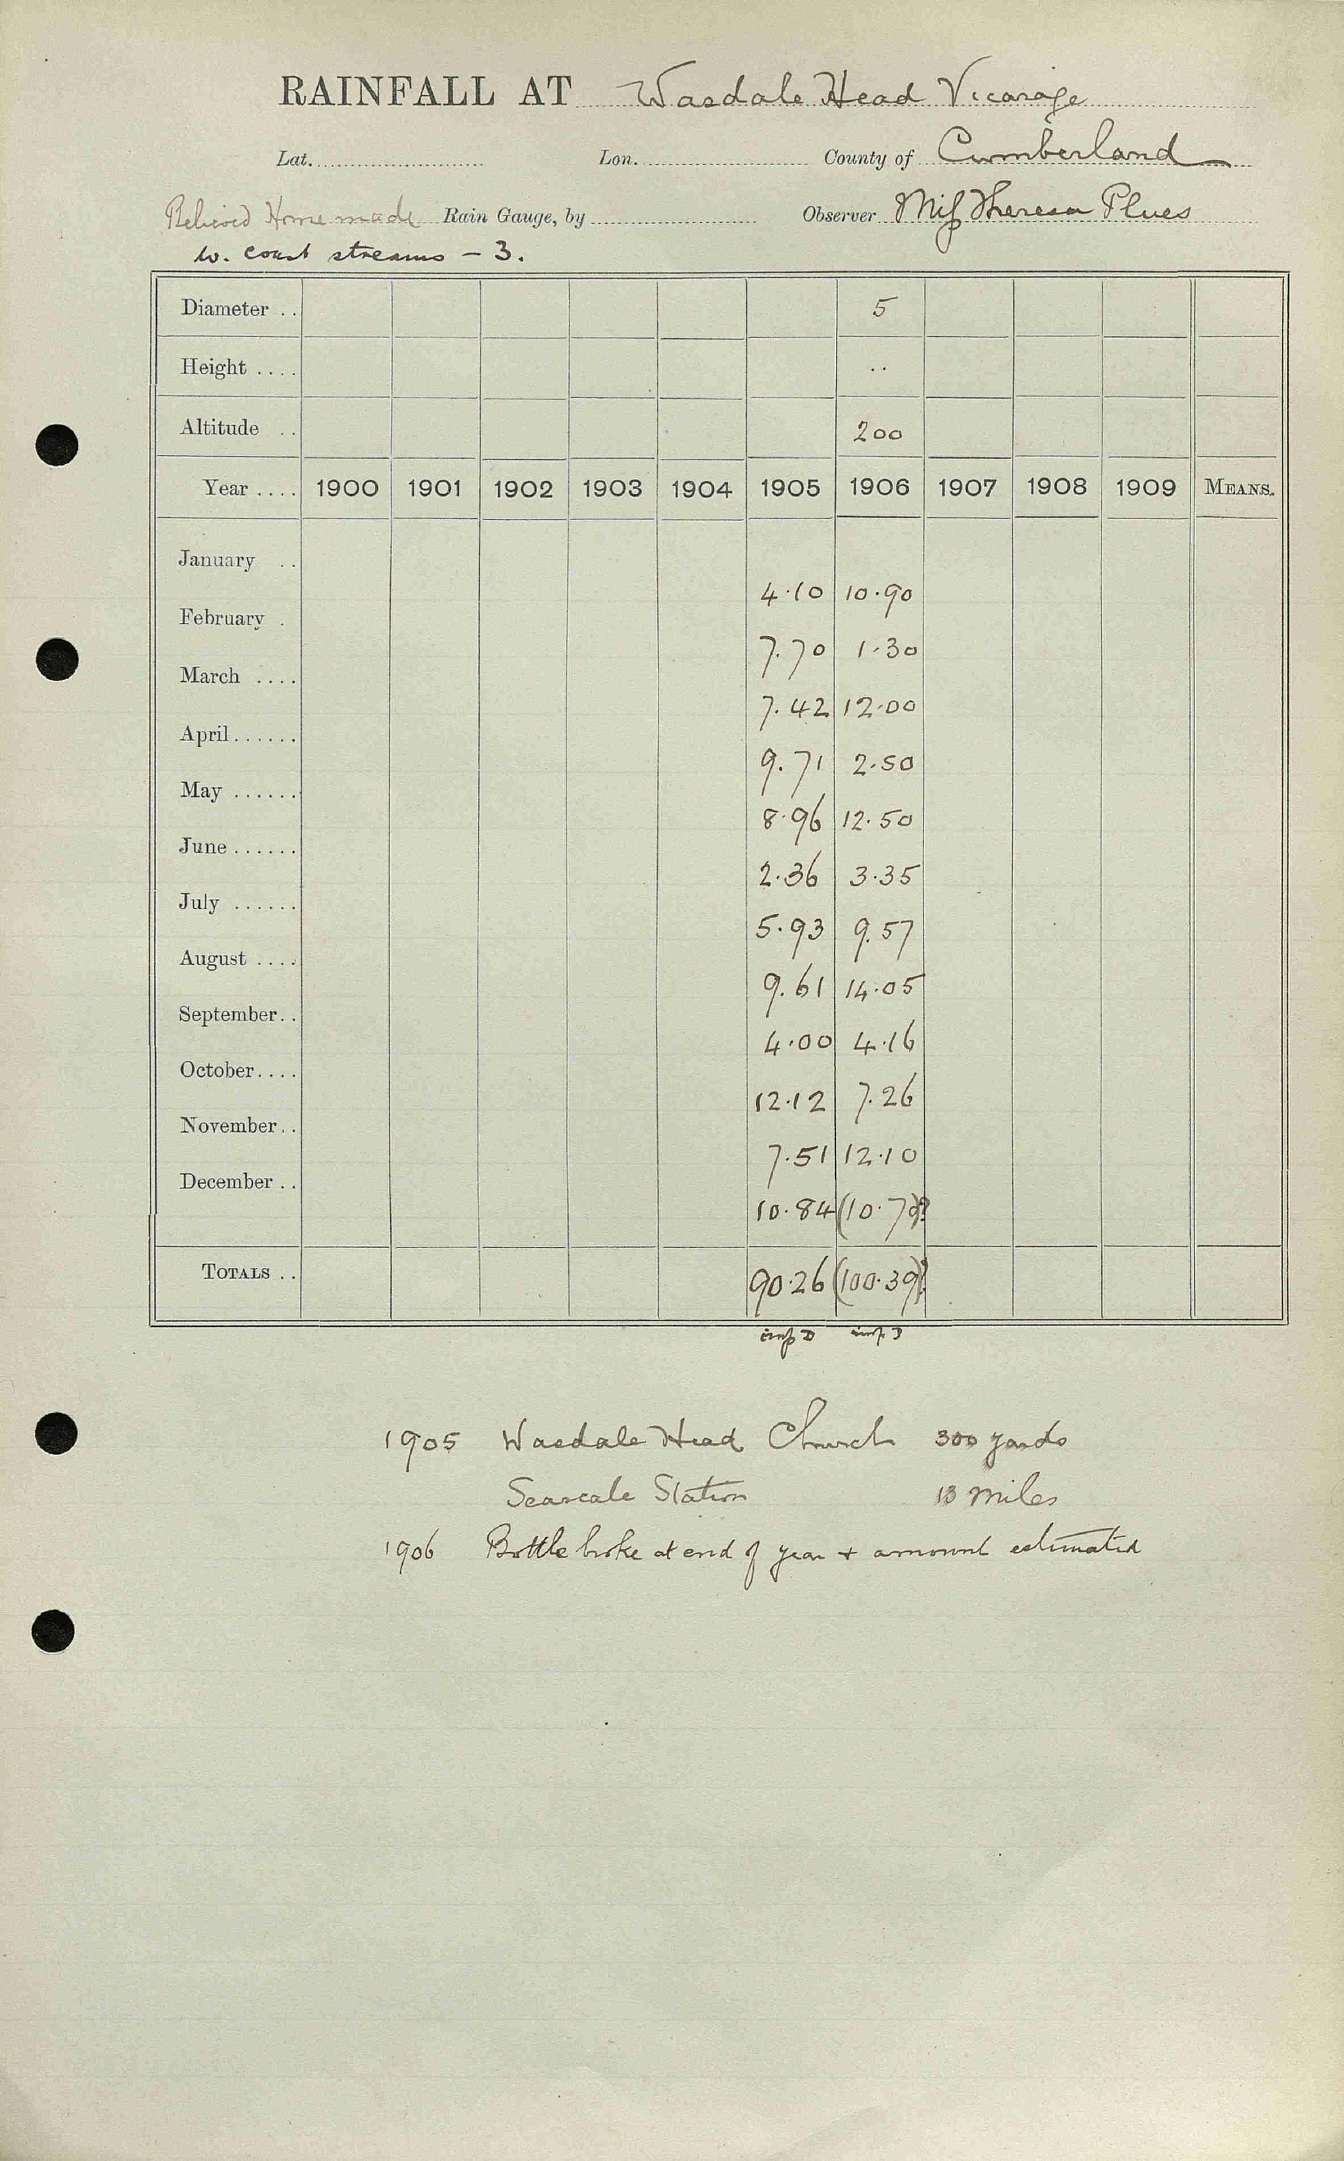 RAINFALL AT Wasdale Head Vicarage
Lat. Lon. County of Cumberland
Believed Home made Rain Gauge, by Observer Miss Theresa Plues
W. coast streams - 3.
Diameter . . 5
Height . . . . . .
Altitude . . 200
Year . . . . 1900 1901 1902 1903 1904 1905 1906 1907 1908 1909 MEANS.
January . .
4.10 10.90
February .
7.70 1.30
March . . . .
7.42 12.00
April . . . . . .
9.71 2.50
May . . . . . .
8.96 12.50
June . . . . . .
2.36 3.35
July . . . . . .
5.93 9.57
August . . . .
9.61 14.05
September . .
4.00 4.16
October . . . .
12.12 7.26
November . .
7.51 12.10
December . .
10.84 (10.70)?
TOTALS . . 90.26 (100.39)?
1905 Wasdale Head Church 300 yards
Seascale Station 13 miles
1906 Bottle broke at end of year + amount estimated